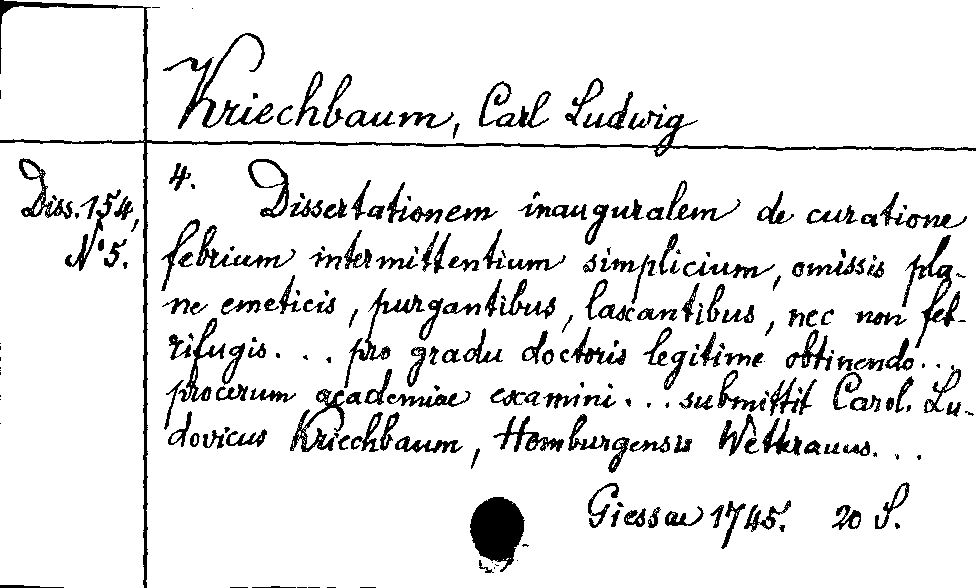 Kriechbaum, Carl Ludwig
Diss. 154,
No 5.
4. Dissertationem inauguralem de curatione
febrium intermittentium simplicium, omissis pla-
ne emeticis, purgantibus, laxantibus, nec non feb-
rifugis... pro gradu doctoris legitime obtinendo...
procerum academiae examini... submittit Carol. Lu-
dovicus Kriechbaum, Homburgensis Wetteravus...
Giessae 1745. 20 S.